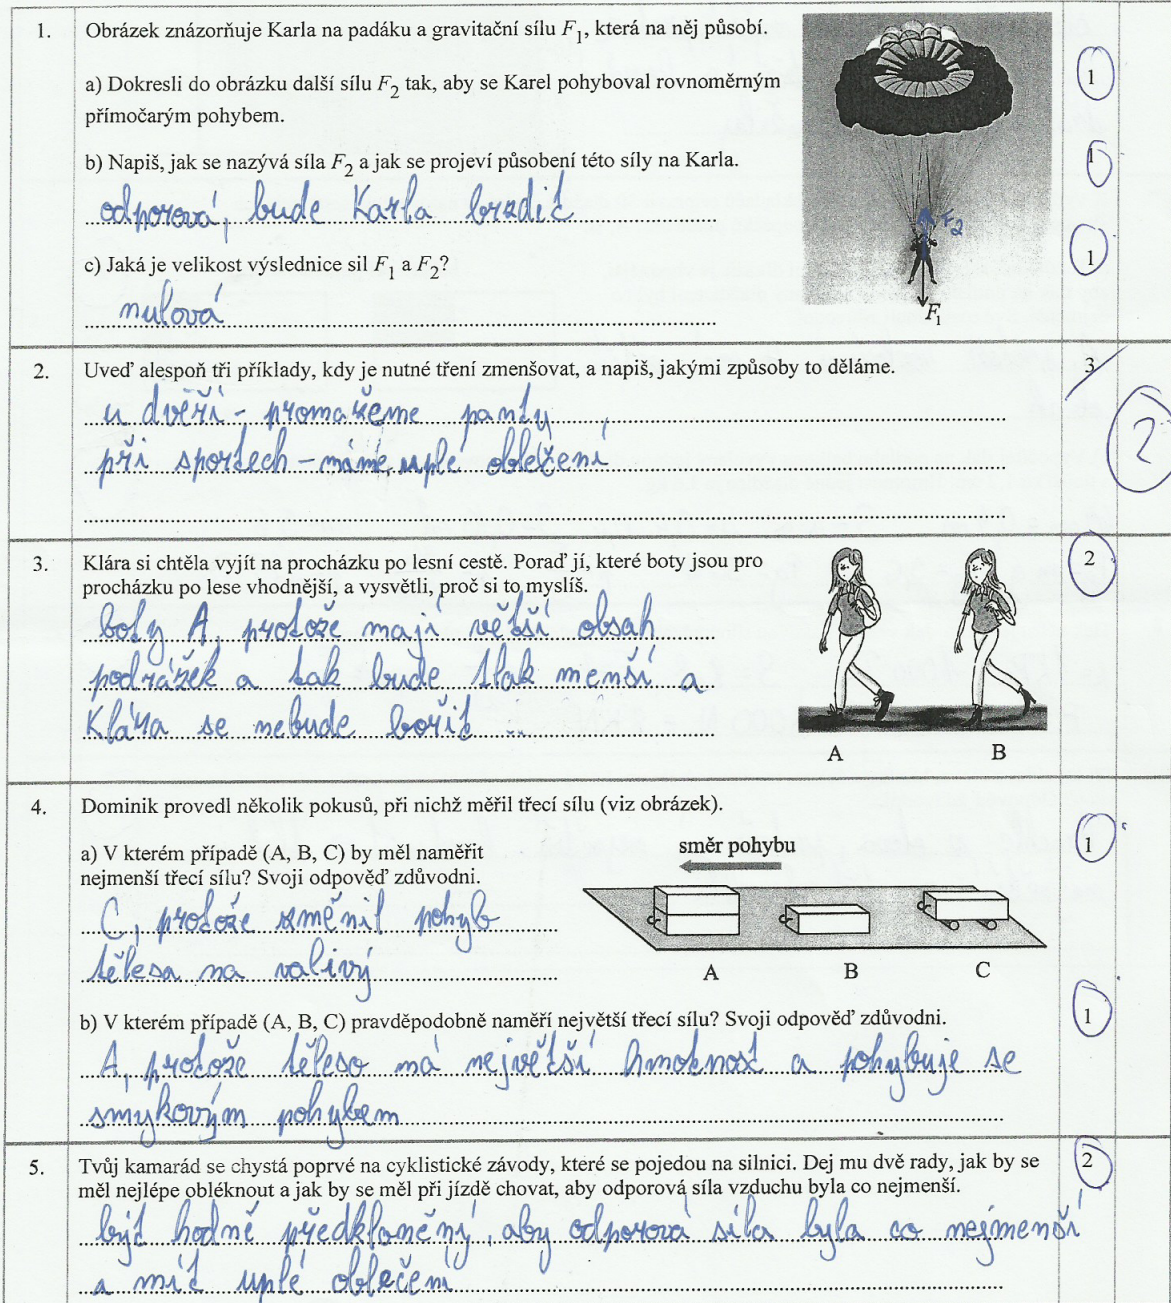 1. Obrázek znázorňuje Karla na padáku a gravitační sílu F1, která na něj působí.
a) Dokresli do obrázku další sílu F2 tak, aby se Karel pohyboval rovnoměrným
přímočarým pohybem.
1
b) Napiš, jak se nazývá síla F2 a jak se projeví působení této síly na Karla.
1
odporová, bude Karla brzdit
F2
c) Jaká je velikost výslednice sil F1 a F2?
1
nulová
F1
2. Uveď alespoň tři příklady, kdy je nutné tření zmenšovat, a napiš, jakými způsoby to děláme.
3
u dveří - promažeme panty
2
při sportech - máme uplé oblečení
3. Klára si chtěla vyjít na procházku po lesní cestě. Poraď jí, které boty jsou pro
procházku po lese vhodnější, a vysvětli, proč si to myslíš.
2
boty A, protože mají větší obsah
podrážek a tak bude tlak menší a
Klára se nebude bořit ..
A B
4. Dominik provedl několik pokusů, při nichž měřil třecí sílu (viz obrázek).
a) V kterém případě (A, B, C) by měl naměřit
nejmenší třecí sílu? Svoji odpověď zdůvodni.
1
směr pohybu
C, protože změnil pohyb
tělesa na valivý
A B C
b) V kterém případě (A, B, C) pravděpodobně naměří největší třecí sílu? Svoji odpověď zdůvodni.
1
A, protože těleso má největší hmotnost a pohybuje se
smykovým pohybem
5. Tvůj kamarád se chystá poprvé na cyklistické závody, které se pojedou na silnici. Dej mu dvě rady, jak by se
měl nejlépe obléknout a jak by se měl při jízdě chovat, aby odporová síla vzduchu byla co nejmenší.
2
být hodně předkloněný, aby odporová síla byla co nejmenší
a mít uplé oblečení